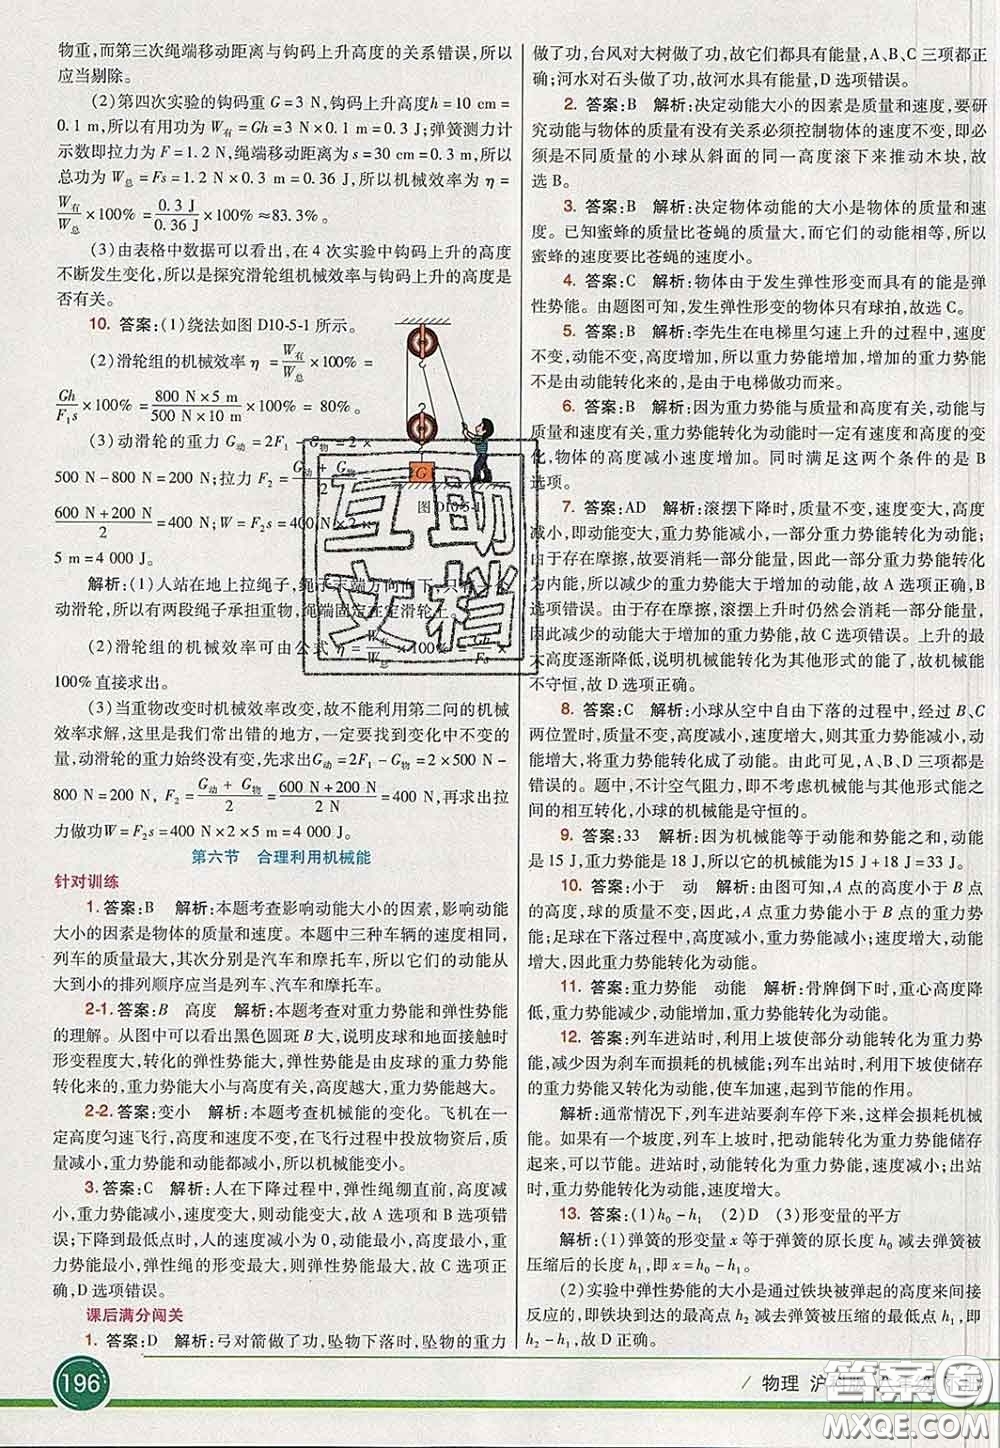 物重,而第三次绳端移动距离与钩码上升高度的关系错误,所以
应当剔除。
(2)第四次实验的钩码重 G=3 N,钩码上升高度h=10 cm=
0.1 m,所以有用功为 W有=Gh=3 N×0.1 m=0.3 J;弹簧测力计
示数即拉力为 F=1.2 N,绳端移动距离为s=30 cm=0.3 m,所以
总功为 W总=Fs=1.2 N×0.3 m=0.36 J,所以机械效率为 η=
W有/W总×100% =0.3 J/0.36 J×100%≈83.3%。
(3)由表格中数据可以看出,在4次实验中钩码上升的高度
不断发生变化,所以是探究滑轮组机械效率与钩码上升的高度是
否有关。
10. 答案:(1)绕法如图 D10-5-1 所示。
(2)滑轮组的机械效率 η=W有/W总×100%=
Gh/F₁s×100%=800 N×5 m/500 N×10 m×100% = 80%。
(3)动滑轮的重力 G动=2F₁-G物=2×
500 N-800 N=200 N;拉力 F₂=(G动+G物)/2=
(600 N+200 N)/2=400 N;W=F₂s=400 N×2×
5 m=4 000 J。
G
图 D10-5-1
解析:(1)人站在地上拉绳子,绳子末端方向向下,只有一个
动滑轮,所以有两段绳子承担重物,绳端固定在定滑轮上。
(2)滑轮组的机械效率可由公式 η=W有/W总×100%=Gh/Fs×
100%直接求出。
(3)当重物改变时机械效率改变,故不能利用第二问的机械
效率求解,这里是我们常出错的地方,一定要找到变化中不变的
量,动滑轮的重力始终没有变,先求出G动=2F₁-G物=2×500 N-
800 N=200 N, F₂=(G动+G物)/2=(600 N+200 N)/2=400 N,再求出拉
力做功W=F₂s=400 N×2×5 m=4 000 J。
第六节 合理利用机械能
针对训练
1. 答案:B 解析:本题考查影响动能大小的因素,影响动能
大小的因素是物体的质量和速度。本题中三种车辆的速度相同,
列车的质量最大,其次分别是汽车和摩托车,所以它们的动能从
大到小的排列顺序应当是列车、汽车和摩托车。
2-1. 答案:B 高度 解析:本题考查对重力势能和弹性势能
的理解。从图中可以看出黑色圆斑 B 大,说明皮球和地面接触时
形变程度大,转化的弹性势能大,弹性势能是由皮球的重力势能
转化来的,重力势能大小与高度有关,高度越大,重力势能越大。
2-2. 答案:变小 解析:本题考查机械能的变化。飞机在一
定高度匀速飞行,高度和速度不变,在飞行过程中投放物资后,质
量减小,重力势能和动能都减小,所以机械能变小。
3. 答案:C 解析:人在下降过程中,弹性绳绷直前,高度减
小,重力势能减小,速度变大,则动能变大,故 A 选项和 B 选项错
误;下降到最低点时,人的速度减小为 0,动能最小,重力势能最
小,弹性绳的形变量最大,则弹性势能最大,故 C 选项正
确,D 选项错误。
课后满分闯关
1. 答案:D 解析:弓对箭做了功,坠物下落时,坠物的重力
做了功,台风对大树做了功,故它们都具有能量,A、B、C 三项都正
确;河水对石头做了功,故河水具有能量,D 选项错误。
2. 答案:B 解析:决定动能大小的因素是质量和速度,要研
究动能与物体的质量有没有关系必须控制物体的速度不变,即必
须是不同质量的小球从斜面的同一高度滚下来推动木块,故
选 B。
3. 答案:B 解析:决定物体动能的大小是物体的质量和速
度。已知蜜蜂的质量比苍蝇的质量大,而它们的动能相等,所以
蜜蜂的速度要比苍蝇的速度小。
4. 答案:C 解析:物体由于发生弹性形变而具有的能是弹
性势能。由题图可知,发生弹性形变的物体只有球拍,故选 C。
5. 答案:B 解析:李先生在电梯里匀速上升的过程中,速度
不变,动能不变,高度增加,所以重力势能增加,增加的重力势能
不是由动能转化来的,是由于电梯做功而来。
6. 答案:B 解析:因为重力势能与质量和高度有关,动能与
质量和速度有关,重力势能转化为动能时一定有速度和高度的变
化,物体的高度减小速度增加。同时满足这两个条件的是 B
选项。
7. 答案:AD 解析:滚摆下降时,质量不变,速度变大,高度
减小,即动能变大,重力势能变小,一部分重力势能转化为动能;
由于存在摩擦,故要消耗一部分能量,因此一部分重力势能转化
为内能,所以减少的重力势能大于增加的动能,故 A 选项正确,B
选项错误。由于存在摩擦,滚摆上升时仍然会消耗一部分能量,
因此减少的动能大于增加的重力势能,故 C 选项错误。上升的最
大高度逐渐降低,说明机械能转化为其他形式的能了,故机械能
不守恒,故 D 选项正确。
8. 答案:C 解析:小球从空中自由下落的过程中,经过 B、C
两位置时,质量不变,高度减小,速度增大,则其重力势能减小,动
能增大,将重力势能转化成了动能。由此可知,A、B、D 三项都是
错误的。题中,不计空气阻力,即没有机械能与其他形式能之间
的相互转化,小球的机械能是守恒的。
9. 答案:33 解析:因为机械能等于动能和势能之和,动能
为 15 J,重力势能是 18 J,所以机械能为15 J+18 J=33 J。
10. 答案:小于 动 解析:由图可知,A 点的高度小于 B 点
的高度,球的质量不变,因此,A 点重力势能小于 B 点的重力势
能;足球在下落过程中,高度减小,重力势能减小;速度增大,动能
增大,因此重力势能转化为动能。
11. 答案:重力势能 动能 解析:骨牌倒下时,重心高度降
低,重力势能减少,动能增加,重力势能转化为动能。
12. 答案:列车进站时,利用上坡使部分动能转化为重力势
能,减少因为刹车而损耗的机械能;列车出站时,利用下坡使储存
的重力势能又转化为动能,使车加速,起到节能的作用。
解析:通常情况下,列车进站要刹车停下来,这样会损耗机械
能。如果有一个坡度,列车上坡时,把动能转化为重力势能储存
起来,可以节能。进站时,动能转化为重力势能,速度减小;出站
时,重力势能转化为动能,速度增大。
13. 答案:(1)h₀-h₁ (2)D (3)形变量的平方
解析:(1)弹簧的形变量 x 等于弹簧的原长度 h₀ 减去弹簧被
压缩后的长度 h₁,即 x=h₀-h₁。
(2)实验中弹性势能的大小是通过铁块被弹起的高度来间接
反应的,即铁块到达的最高点 h₂ 减去弹簧被压缩的最低点 h₁,即
h₂-h₁,故 D 正确。
互助
文档
196
物理 沪
答案圈
MXQE.COM